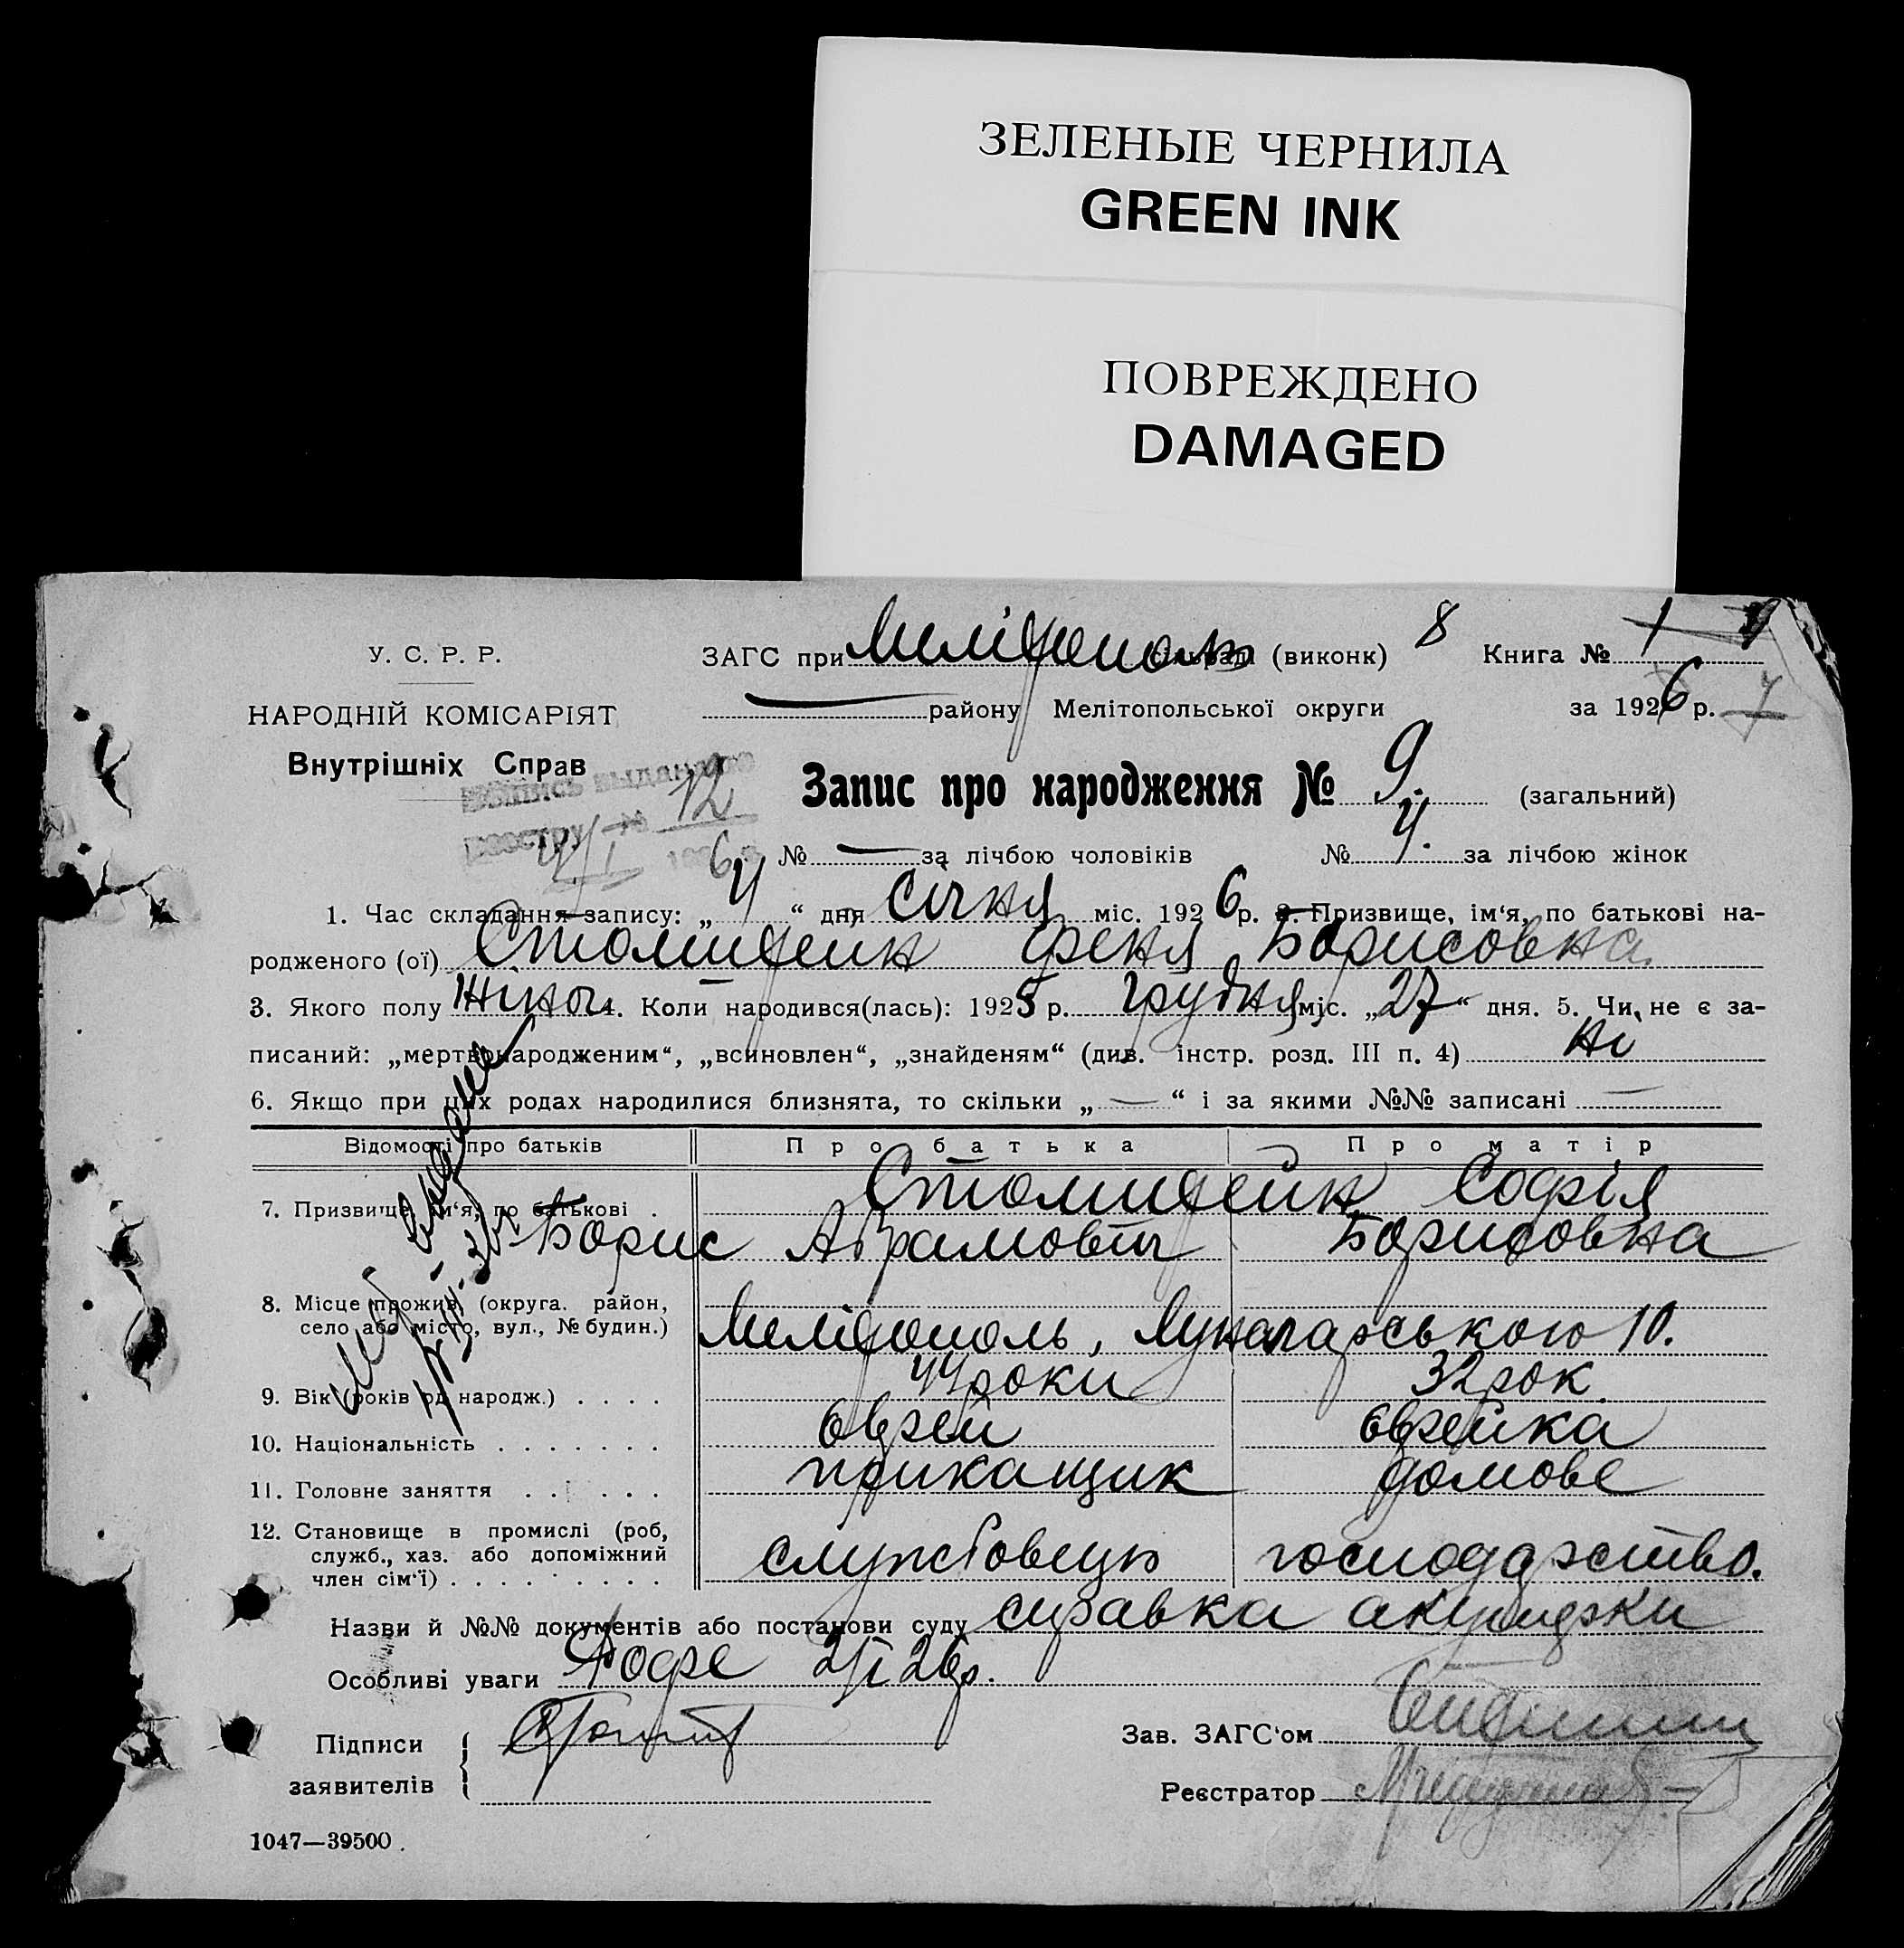 ЗЕЛЕНЫЕ ЧЕРНИЛА
GREEN INK
ПОВРЕЖДЕНО
DAMAGED
У. С. Р. Р.
НАРОДНІЙ КОМІСАРІЯТ
Внутрішніх Справ
ЗАГС при Мелітополь (виконк) 8 Книга № 1
району Мелітопольської округи за 1926 р. 7
выдана
Реестру № 12
4/I 6
Запис про народження № 9. (загальний)
№ — за лічбою чоловіків № 4. за лічбою жінок
1. Час складання запису: „ 4 “ дня січня міс. 1926 р. 2. Призвище, ім‘я, по батькові на-
родженого (ої) Столитейн Феня Борисовна
3. Якого полу жіноч. 4. Коли народився(лась): 1925 р. Грудня міс. „27“ дня. 5. Чи не є за-
писаний: „мертвонародженим“, „всиновлен“, „знайденям“ (див. інстр. розд. III п. 4) ні
6. Якщо при цих родах народилися близнята, то скільки „ — “ і за якими №№ записані —
Відомості про батьків Про батька Про матір
7. Призвище, ім‘я, по батькові . Столитейн Софія
Борис Абрамович Борисовна
8. Місце прожив. (округа. район,
село або місто, вул., № будин.) Мелітополь, Луначарського 10.
9. Вік (років од народж.) . . . . 44 роки 32 рок.
10. Національність . . . . . . . єврей єврейка
11. Головне заняття . . . . . . прикащик домове
12. Становище в промислі (роб,
служб., хаз. або допоміжний
член сім‘ї) . . . . . . . . . службовець господарство.
Назви й №№ документів або постанови суду справка акушерки
Особливі уваги Йофе 2/I 26р.
Підписи
заявителів
Зав. ЗАГС‘ом
Реєстратор
1047—39500.